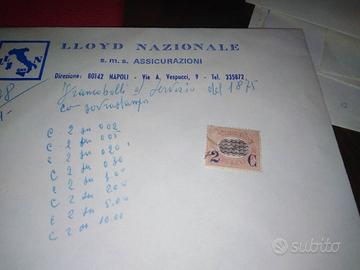 LLOYD NAZIONALE
s.m.s. ASSICURAZIONI
Direzione: 80142 NAPOLI - Via A. Vespucci, 9 - Tel. 335872
Francobolli di Servizio del 1875
con sovrastampa
C 2 su 0.02
C 2 su 0.05
C 2 su 0.20
C 2 su 0.30
C 2 su 1.00
C 2 su 2.00
C 2 su 5.00
C 2 su 10.00
2 C
subito